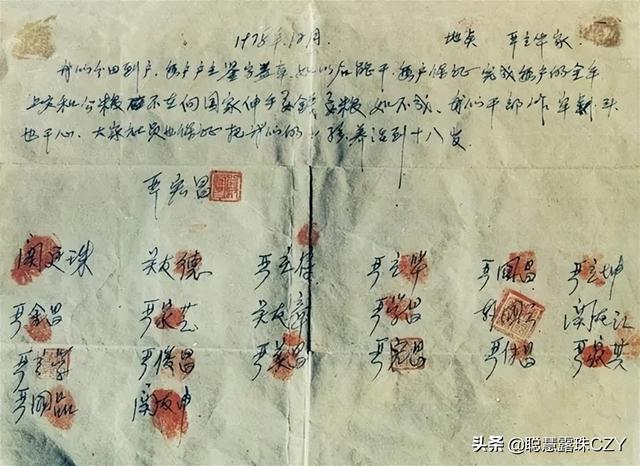 1978年12月. 地点 严立华家
我们分田到户,每户户主签字盖章,如以后能干,每户保证完成每户的全年
上交和公粮不在向国家伸手要钱要粮如不成,我们干部作牢剎头
也干心,大家社员也保证把我们的小孩养活到十八岁.
严宏昌
关廷珠 关友德 严立付 严立华 严国昌 严立坤
严金昌 严家芝 关友章 严学昌 韩国云 关友江
严立学 严俊昌 严美昌 严宏昌 严付昌 严家其
严国品 关友申
头条 @聪慧露珠CZY